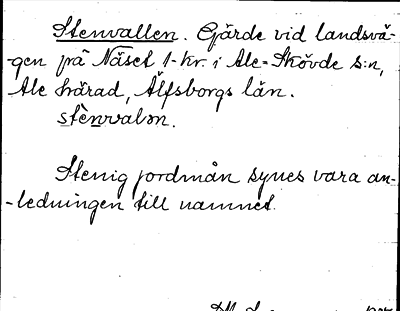 Stenvallen. Gärde vid landsvä-
-gen på Näset 1-kr. i Ale-Skövde s:n,
Ale härad, Älfsborgs län.
stènvalən.
Stenig jordmån synes vara an-
-ledningen till namnet.